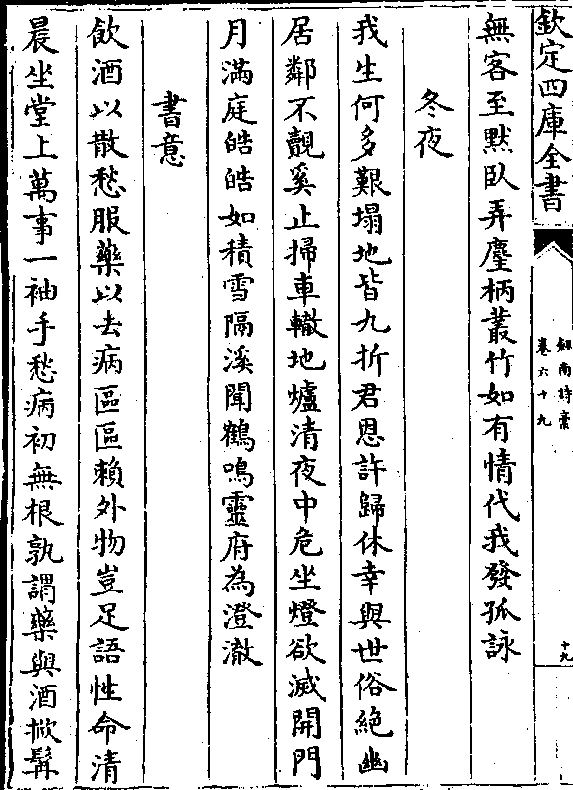 欽定四庫全書
劍南詩藁
卷六十九
十九
無客至默臥弄麈柄叢竹如有情代我發孤詠
冬夜
我生何多艱塌地皆九折君恩許歸休幸與世俗絶幽
居鄰不覿奚止掃車轍地爐清夜中危坐燈欲滅開門
月滿庭皓皓如積雪隔溪聞鶴鳴靈府為澄澈
書意
飲酒以散愁服藥以去病區區賴外物豈足語性命清
晨坐堂上萬事一袖手愁病初無根孰謂藥與酒掀髯